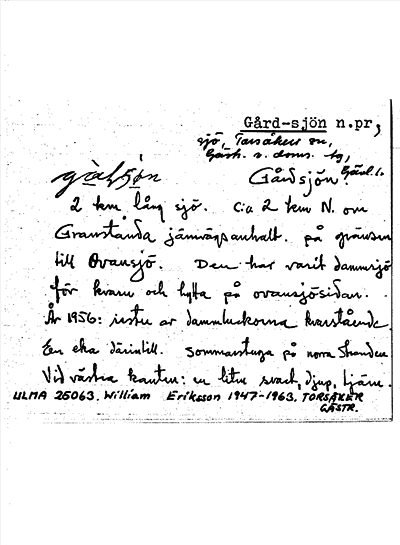 Gård-sjön n.pr,
sjö, Torsåkers sn,
Gästr. ö. doms. tg,
Gävl. l.
Gårdsjön.
2 km lång sjö. C:a 2 km N. om
Granstanda järnvägsanhalt. på gränsen
till Ovansjö. Den har varit dammsjö
för kvarn och hytta på ovansjösidan.
År 1956: rester av dammluckorna kvarstående.
En eka därintill. Sommarstuga på norra stranden
Vid västra kanten: en liten svart, djup, tjärn.
ULMA 25063. William Eriksson 1947-1963. TORSÅKER
GÄSTR.